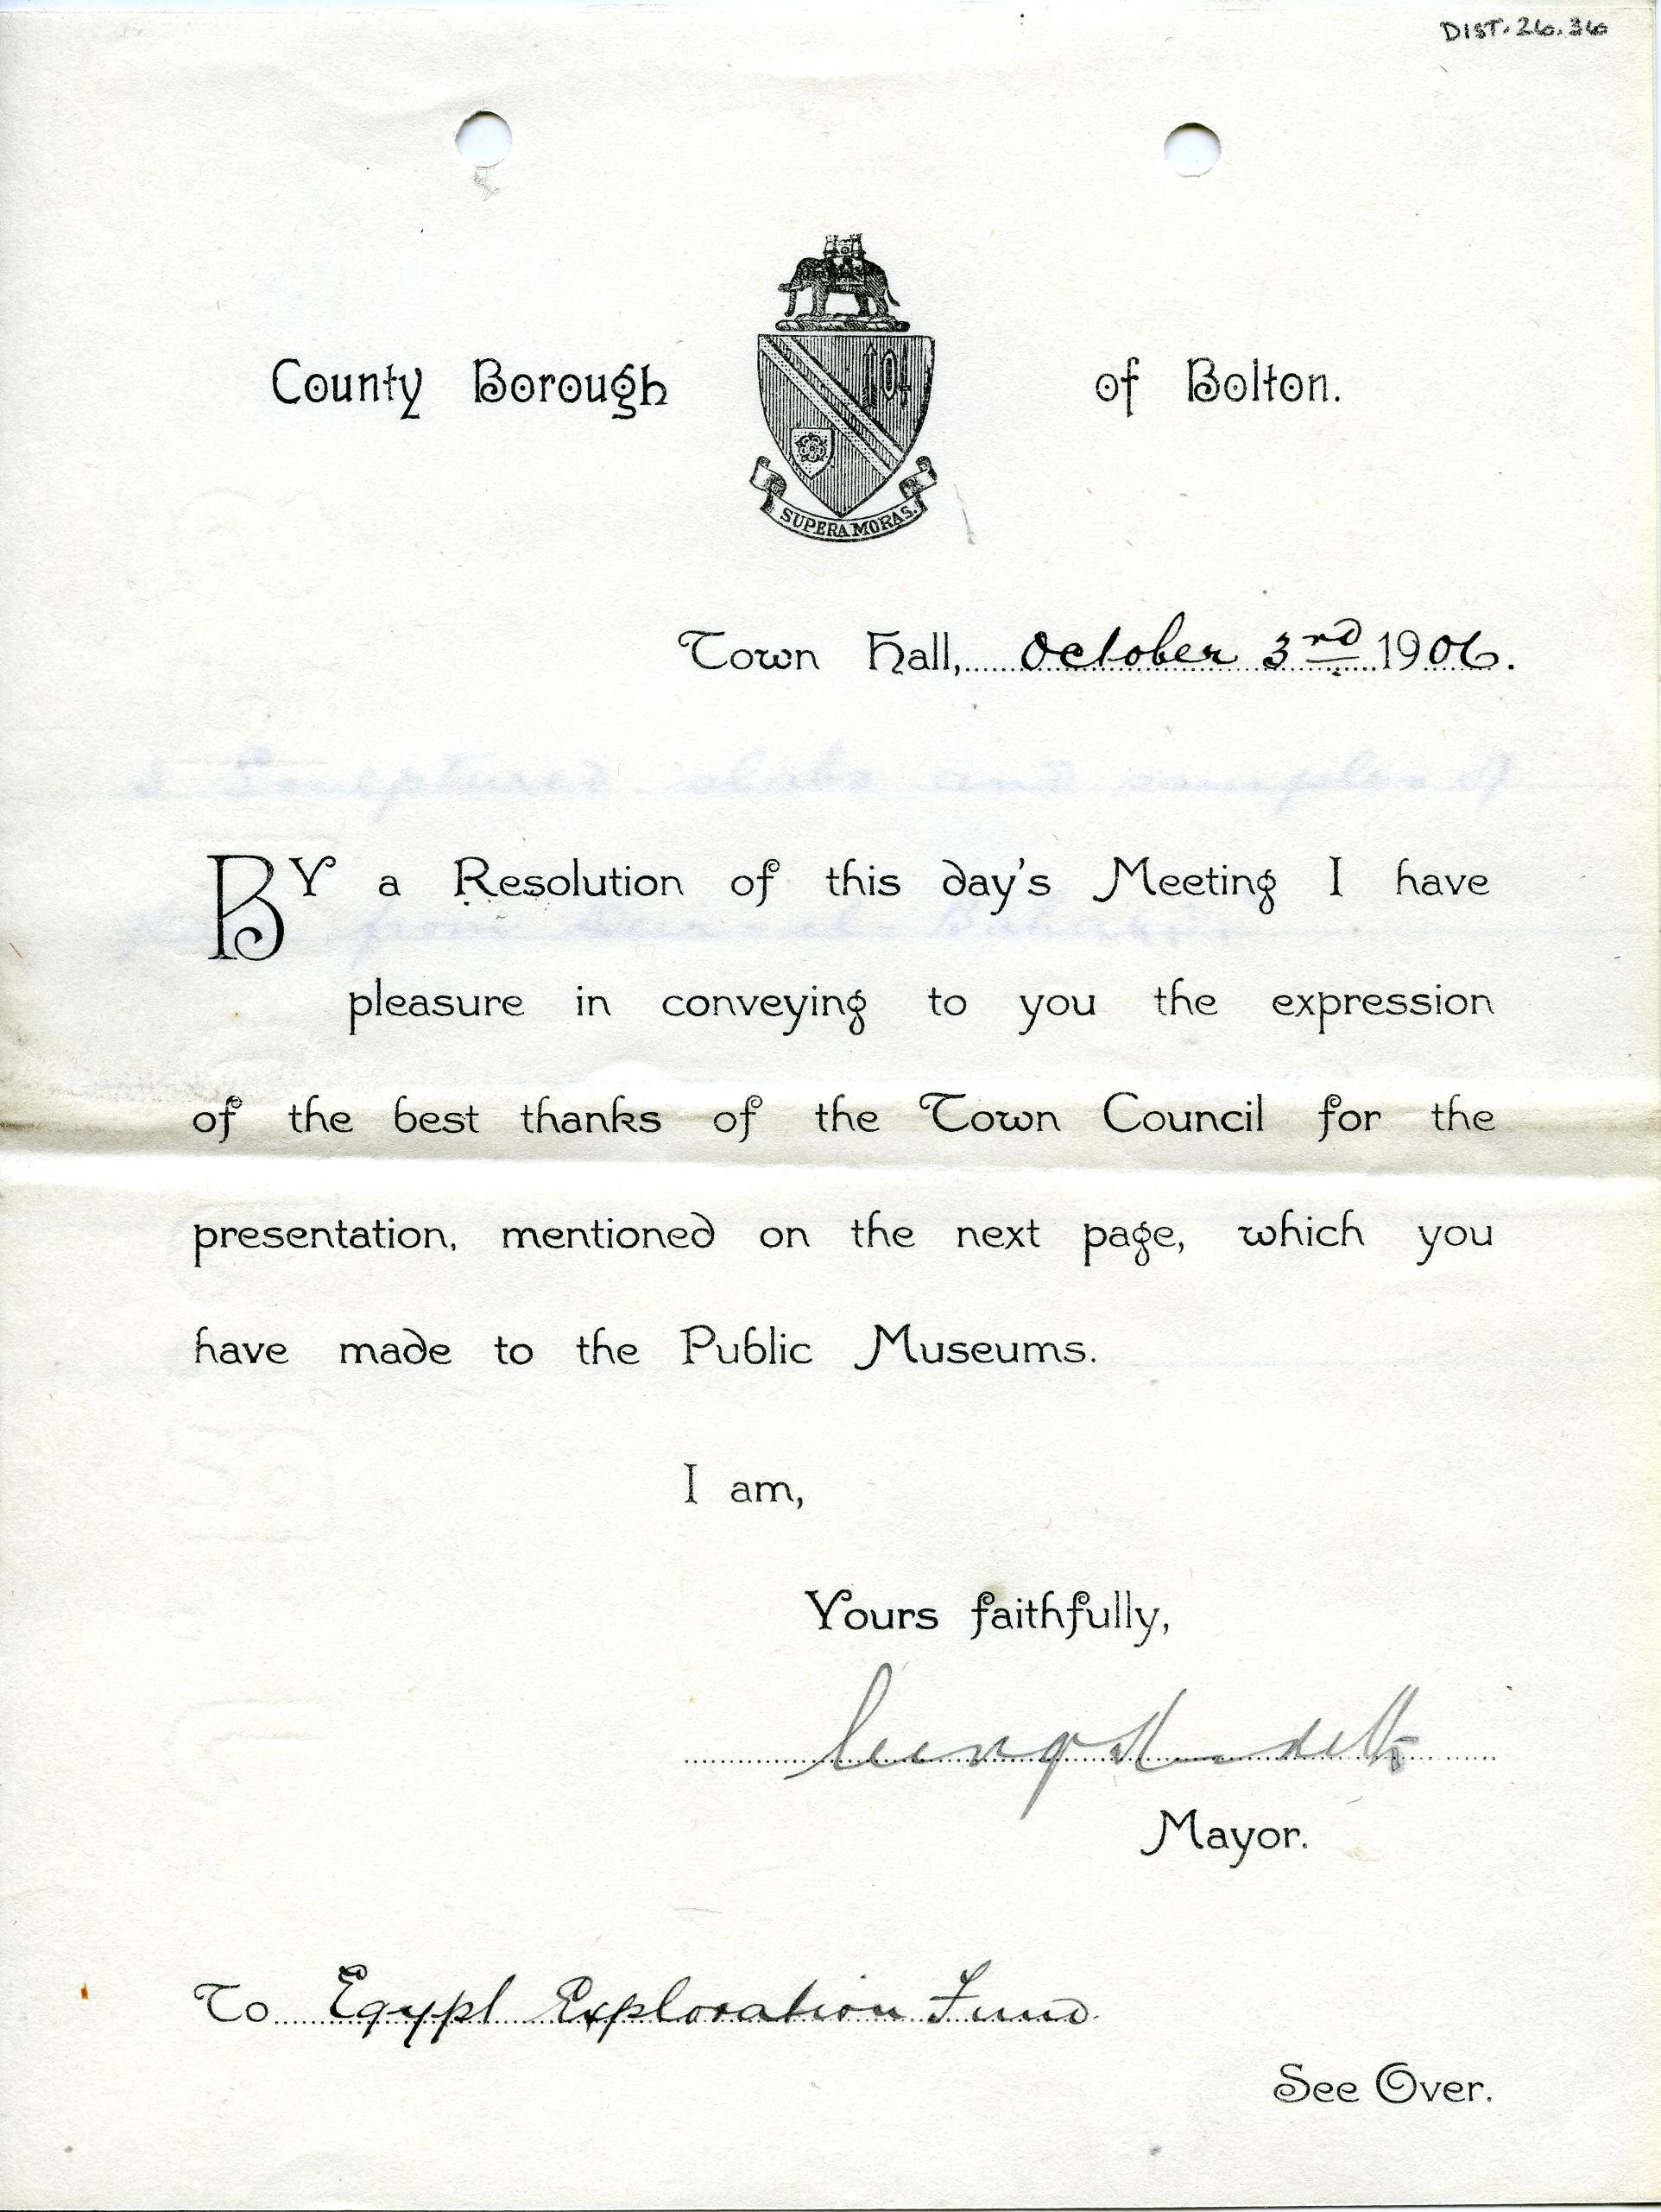 DIST. 26.36
County Borough of Bolton.
SUPERA MORAS.
Town Hall, October 3rd 1906.
2 Sculptured slabs and samples of
BY a Resolution of this day's Meeting I have
from Deir-el-Bahari.
pleasure in conveying to you the expression
of the best thanks of the Town Council for the
presentation, mentioned on the next page, which you
have made to the Public Museums.
I am,
Yours faithfully,
Mayor.
To Egypt Exploration Fund.
See Over.